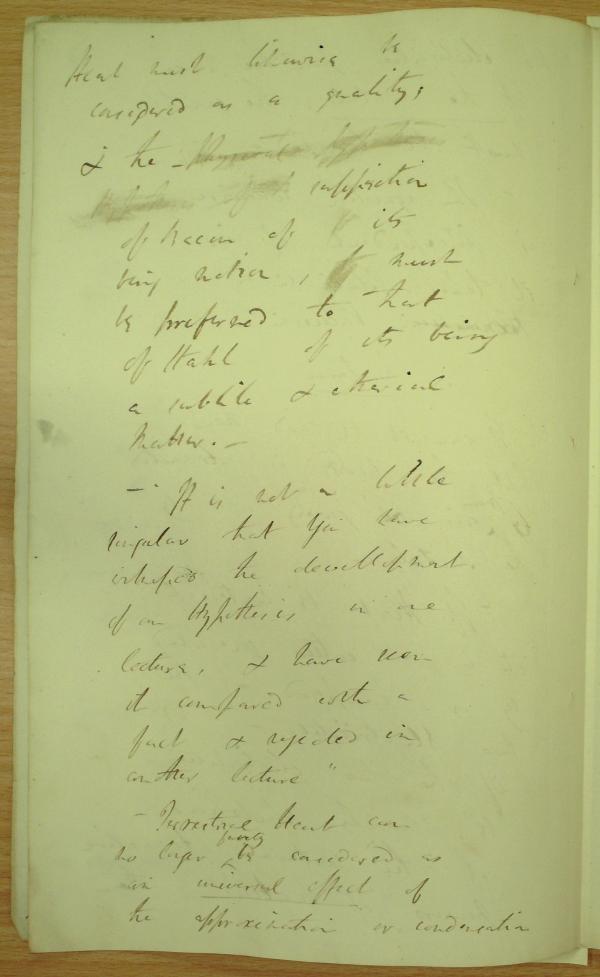 Heat must likewise be
considered as a quality;
& the - Physical
supposition
of Bacon of its
being motion, must
be preferred to that
of Stahl of its being
a subtile & etherial
Matter. -
- "It is not a little
singular that you have
witnessed the development
of an Hypothesis in one
lecture, & have seen
it compared with a
fact & rejected in
another lecture"
- Terrestrial Heat can
no longer be considered as
an universal effect of
the approximation or condensation